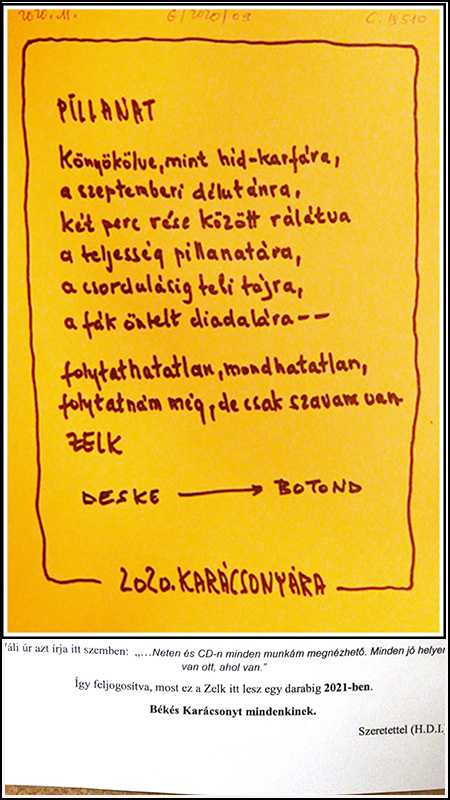 2020. M.
G/2020/09
C. 19510
PILLANAT
Könyökölve, mint híd-karfára,
a szeptemberi délutánra,
két perc rése között rálátva
a teljesség pillanatára,
a csordulásig teli tájra,
a fák öntelt diadalára--
folytathatatlan, mondhatatlan,
folytatnám még, de csak szavam van.
ZELK
DESKE → BOTOND
2020. KARÁCSONYÁRA
úr azt írja itt szemben: „…Neten és CD-n minden munkám megnézhető. Minden jó helyen
van ott, ahol van."
Így feljogosítva, most ez a Zelk itt lesz egy darabig 2021-ben.
Békés Karácsonyt mindenkinek.
Szeretettel (H.D.I.)